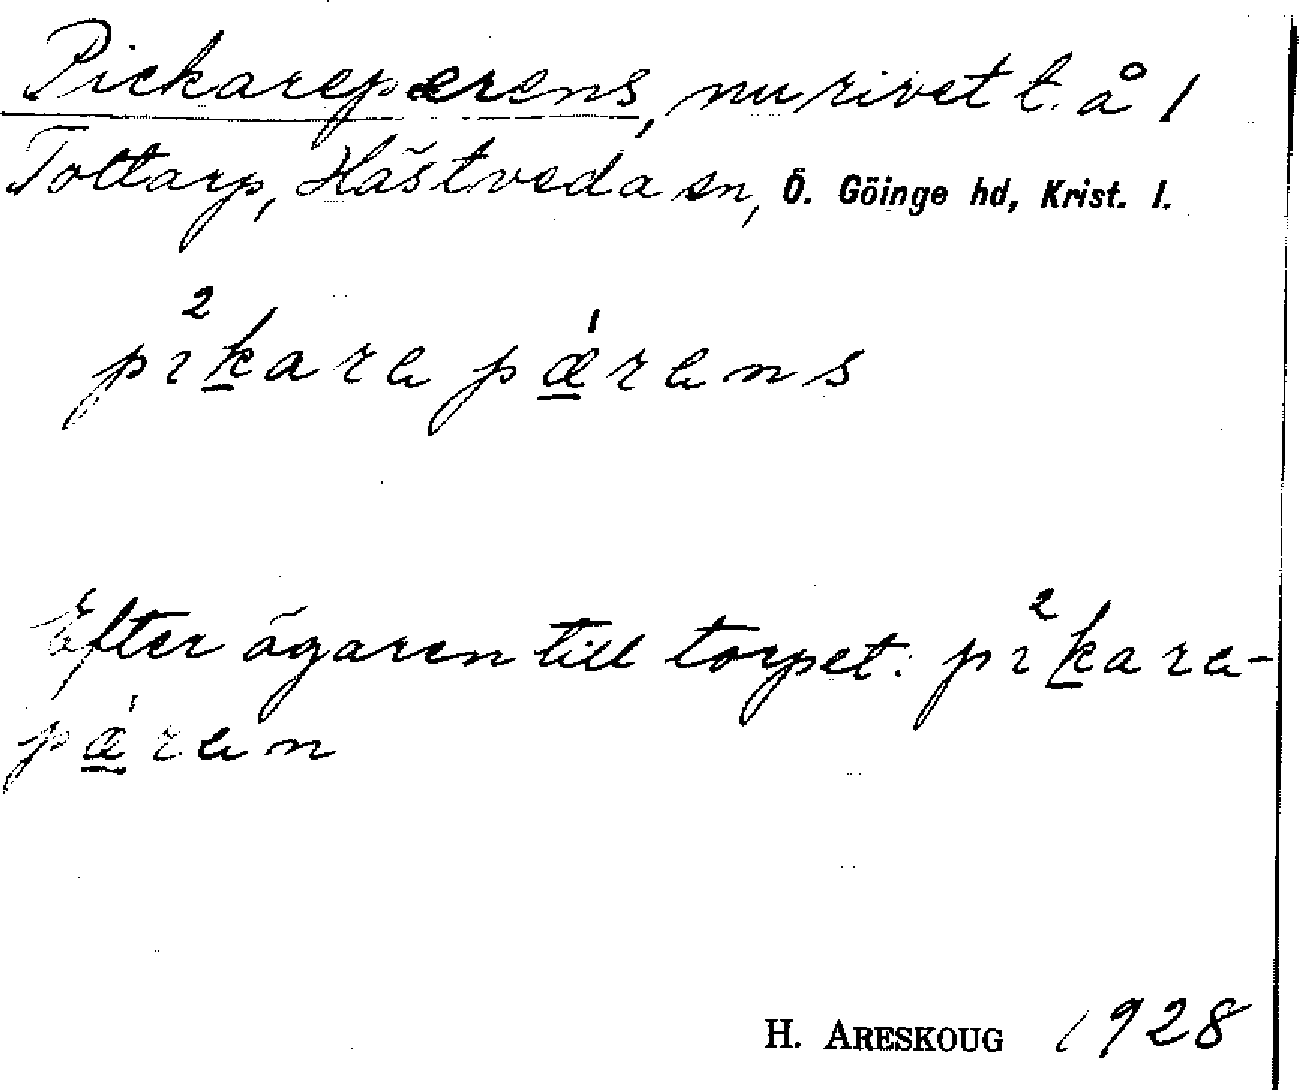 Pickarepærens, nu rivet t. å 1
Tottarp, Hästveda sn, Ö. Göinge hd, Krist. l.
pi²kare pǽrens
Efter ägaren till torpet: pi²kare-
pǽren
H. ARESKOUG 1928